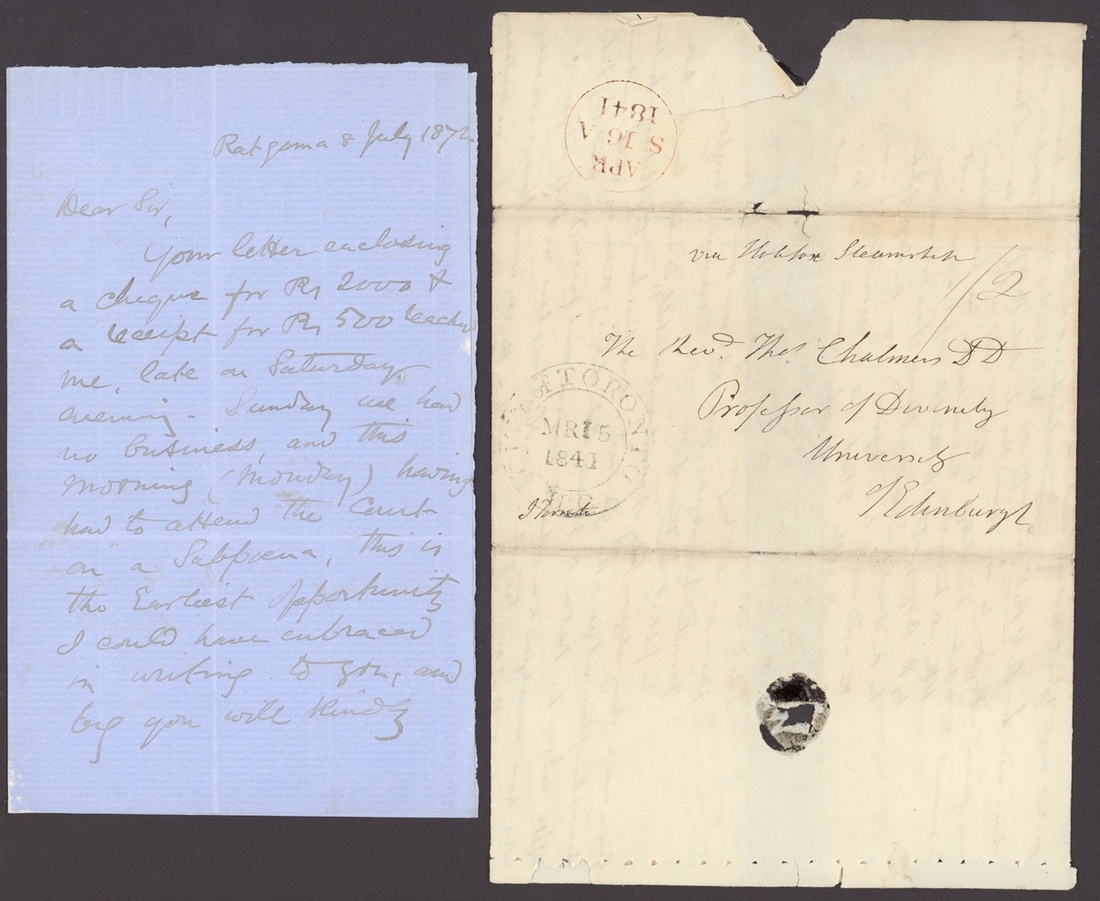 Ratgama 8 July 1872.
Dear Sir,
Your letter enclosing
a cheque for Rs 2000 &
a receipt for Rs 500 reached
me, late on Saturday
evening. Sunday we had
no business, and this
morning (Monday) having
had to attend the Court
on a Subpoena, this is
the Earliest opportunity
I could have embraced
in writing to you, and
beg you will kindly
APR
S 16 A
1841
via Halifax Steamship
1/2
The Revd. Thos. Chalmers DD
Professor of Divinity
University
of Edinburgh
CITY of TORONTO
MR 15
1841
U.C.
Toronto